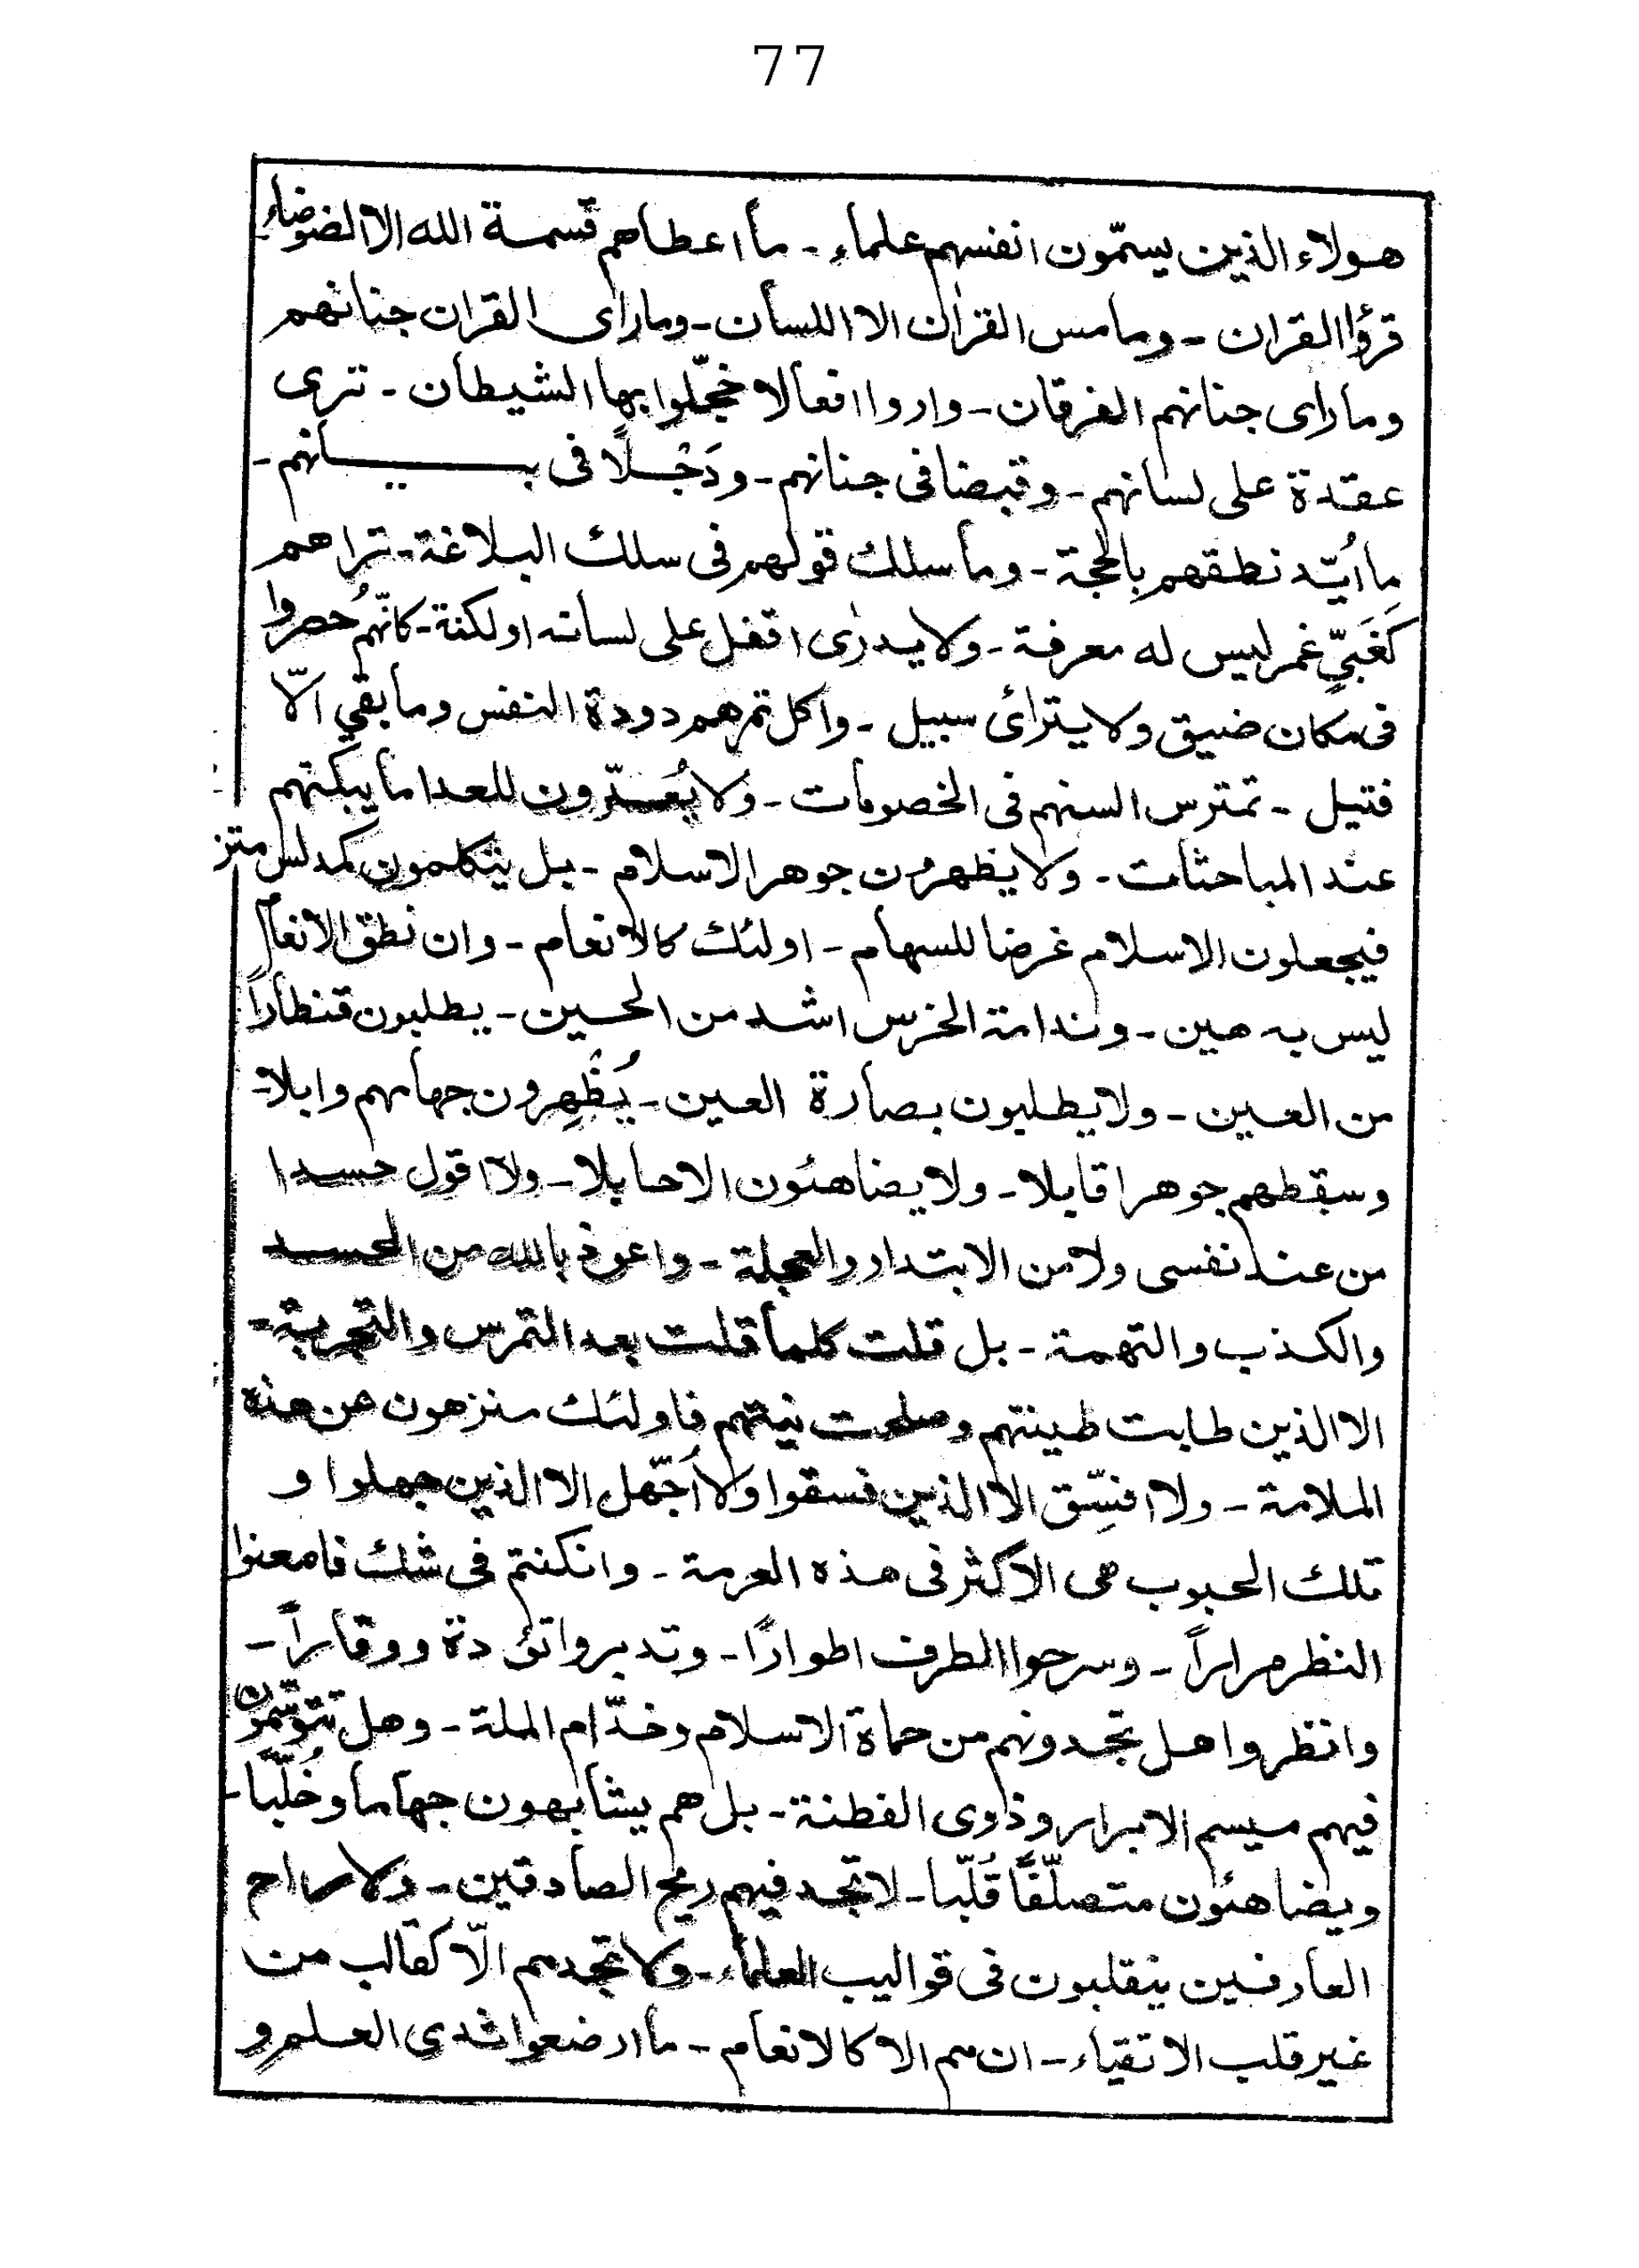 77
هولاء الذين يسمّون انفسهم علماء - ما اعطاهم قسمة الله الا الضوضاء
قرؤا القران - وما مس القران الا اللسان - وما رای القران جنانهم
وما رای جنانهم الفرقان - واروا افعالا خجّلوا بها الشيطان - تری
عقدة علی لسانهم - وقبضا فی جنانهم - ودَجْلًا فی بيانهم -
ما اُيّد نطقهم بالحجة - وما سلك قولهم فی سلك البلاغة - تراهم
كَغَبِیٍّ غمر ليس له معرفة - ولا يدرٰی اقفل علی لسانه او لكنة - كانّهم حُصروا
فی مكان ضيق ولا يترائ سبيل - واكل تمرهم دودة النفس وما بقی الّا
فتيل - تمترس السنهم فی الخصومات - ولا يُعدّون للعدا ما يبكتهم
عند المباحثات - ولا يظهرون جوهر الاسلام - بل يتكلمون كمدلس متز
فيجعلون الاسلام غرضا للسهام - اولئك كالانعام - وان نطق الانعام
ليس به هين - وندامة الخرس اشد من الحسين - يطلبون قنطاراً
من العين - ولا يطلبون بصارة العين - يُظْهِرون جهامهم وابلا -
وسقطهم جوهرا قابلا - ولا يضاهئون الا حابلا - ولا اقول حسدا
من عند نفسی ولا من الابتدار والعجلة - واعوذ بالله من الحسد
والكذب والتهمة - بل قلت كلما قلت بعد التمرس والتجربة -
الا الذين طابت طينتهم وصلحت نيتهم فاولئك منزهون عن هذه
الملامة - ولا افسِّق الا الذين فسقوا ولا اُجَهّل الا الذين جهلوا و
تلك الحبوب هی الاكثر فی هذه العرمة - وانكنتم فی شك فامعنوا
النظر مراراً - وسرحوا الطرف اطوارًا - وتدبروا تؤدة ووقاراً -
وانظروا هل تجدونهم من حماة الاسلام وخدّام الملة - وهل تتوسّمون
فيهم ميسم الابرار وذاوی الفطنة - بل هم يشابهون جهاما وخُلّبًا -
ويضاهئون متصلّفًا قُلّبا - لا تجد فيهم ريح الصادقين - ولا راح
العارفين ينقلبون فی قواليب العلماء - ولا تجدهم الّا كقالب من
غير قلب الاتقياء - ان هم الا كالانعام - ما ارضعوا ثدی العلم و